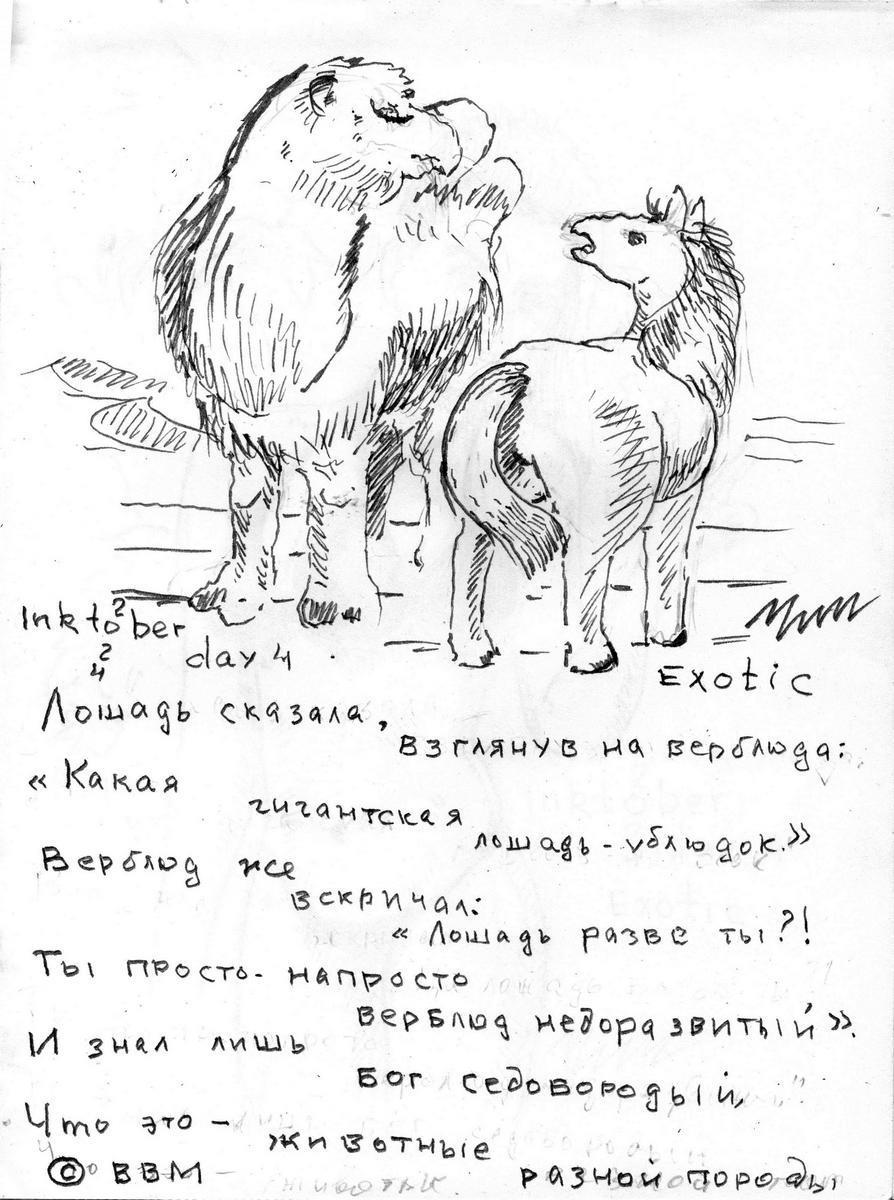 Inktober
2
2
4
day 4
Exotic
Лошадь сказала,
взглянув на верблюда:
«Какая
гигантская
лошадь-ублюдок.»
Верблюд же
вскричал:
«Лошадь разве ты?!
Ты просто-напросто
верблюд недоразвитый».
И знал лишь
Бог седобородый,
Что это –
животные
разной породы
© ВВМ